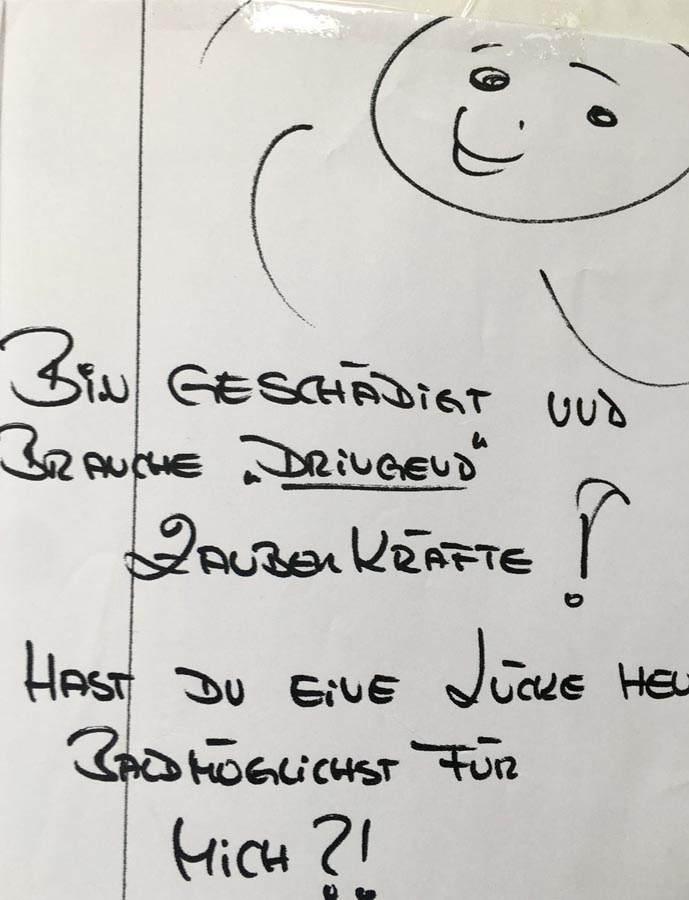 Bin GESCHÄDIGT UND
BRAUCHE „DRINGEND“
ZAUBERKRÄFTE!
HAST DU EINE LÜCKE HEU
BALDMÖGLICHST FÜR
MICH?!